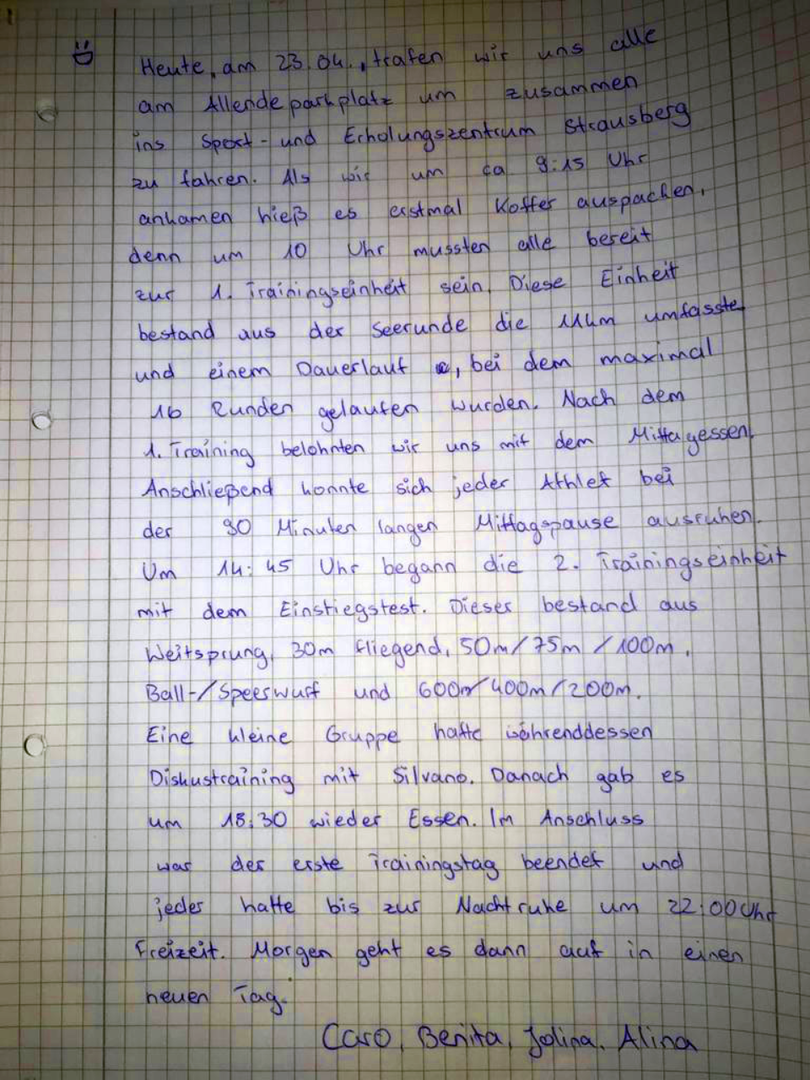 Heute, am 23.04., trafen wir uns alle
am Allendeparkplatz um zusammen
ins Sport- und Erholungszentrum Strausberg
zu fahren. Als wir um ca 9:15 Uhr
ankamen hieß es erstmal Koffer auspacken,
denn um 10 Uhr mussten alle bereit
zur 1. Trainingseinheit sein. Diese Einheit
bestand aus der Seerunde die 11km umfasste
und einem Dauerlauf, bei dem maximal
16 Runden gelaufen wurden. Nach dem
1. Training belohnten wir uns mit dem Mittagessen.
Anschließend konnte sich jeder Athlet bei
der 90 Minuten langen Mittagspause ausruhen.
Um 14:45 Uhr begann die 2. Trainingseinheit
mit dem Einstiegstest. Dieser bestand aus
Weitsprung, 30m fliegend, 50m/75m/100m,
Ball-/Speerwurf und 600m/400m/200m.
Eine kleine Gruppe hatte währenddessen
Diskustraining mit Silvano. Danach gab es
um 18:30 wieder Essen. Im Anschluss
war der erste Trainingstag beendet und
jeder hatte bis zur Nachtruhe um 22:00 Uhr
Freizeit. Morgen geht es dann auf in einen
neuen Tag.
Caro, Benita, Jolina, Alina